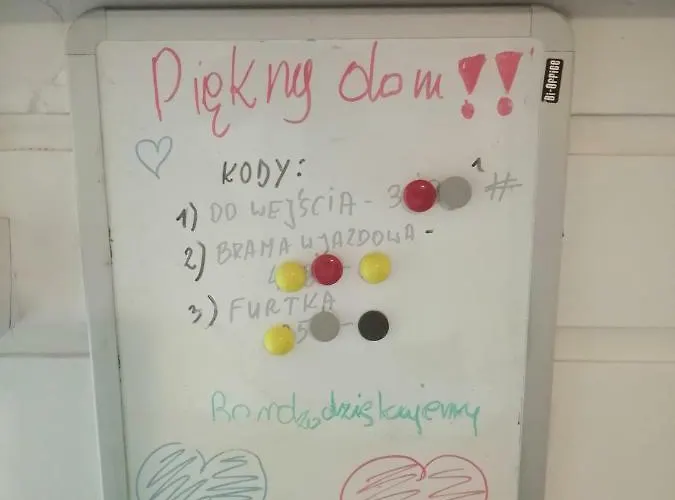 Piękny dom!!
Bi-Office
KODY:
1) DO WEJŚCIA - 3 #
2) BRAMA WJAZDOWA -
3) FURTKA
5 -
Bardzo dziękujemy